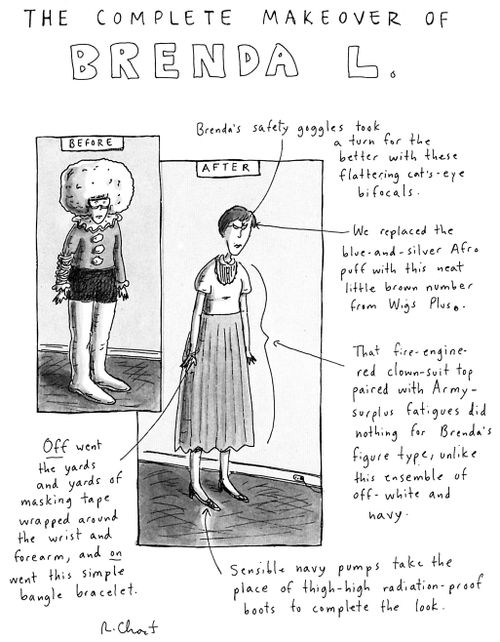 THE COMPLETE MAKEOVER OF
BRENDA L.
BEFORE
AFTER
Brenda's safety goggles took
a turn for the
better with these
flattering cat's-eye
bifocals.
We replaced the
blue-and-silver Afro
puff with this neat
little brown number
from Wigs Plus.
That fire-engine-
red clown-suit top
paired with Army-
surplus fatigues did
nothing for Brenda's
figure type, unlike
this ensemble of
off-white and
navy.
Off went
the yards
and yards of
masking tape
wrapped around
the wrist and
forearm, and on
went this simple
bangle bracelet.
Sensible navy pumps take the
place of thigh-high radiation-proof
boots to complete the look.
R. Chast